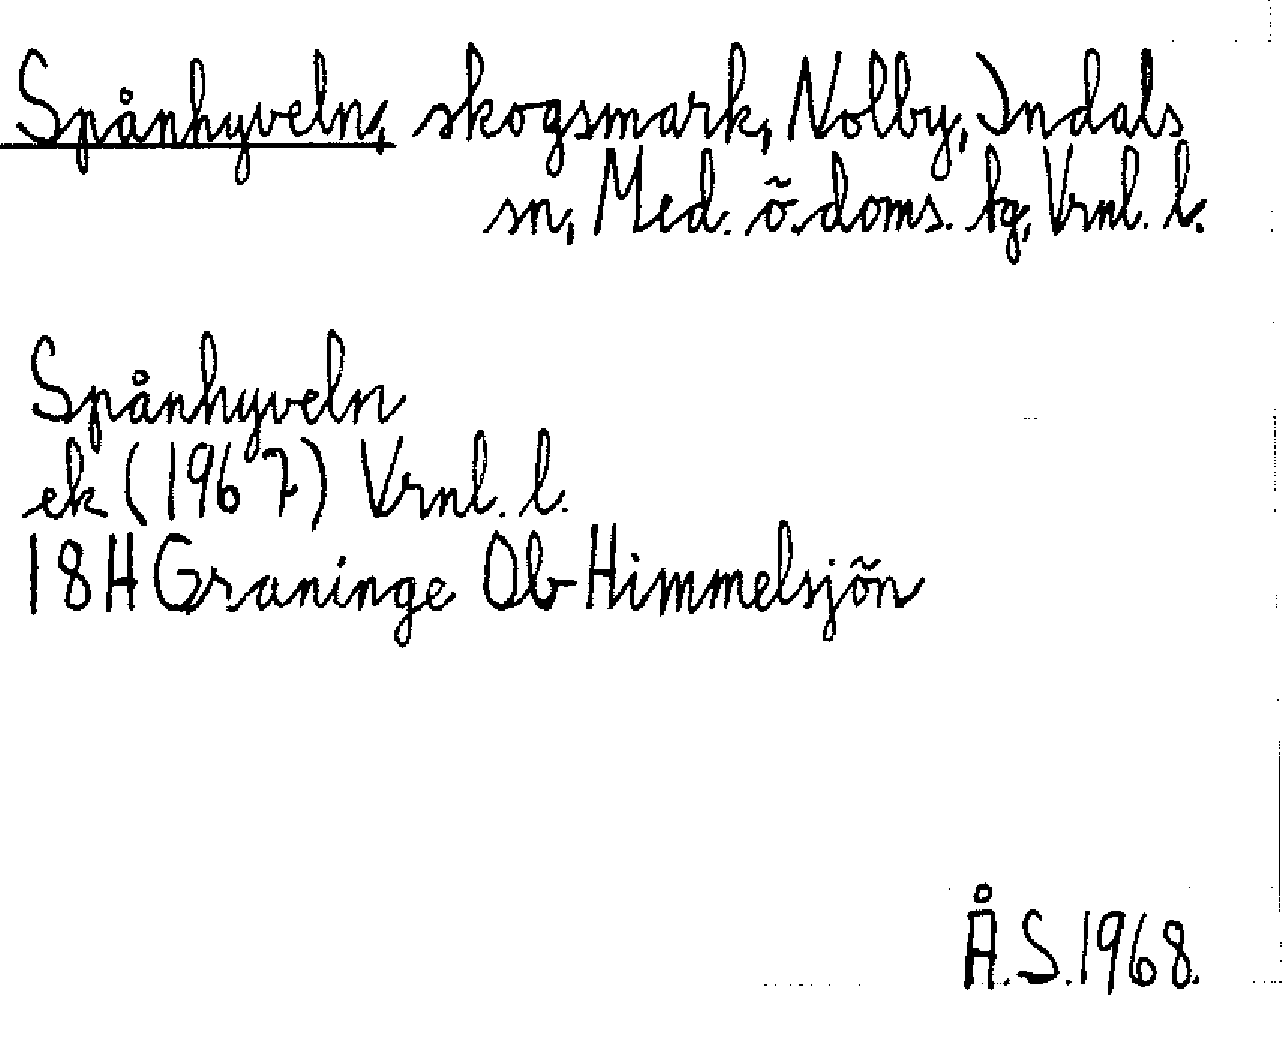 Spånhyveln, skogsmark, Nolby, Indals
sn, Med. ö. doms. tg, Vrnl. l.
Spånhyveln
ek (1967) Vrnl. l.
18H Graninge Ob Himmelsjön
Å.S. 1968.